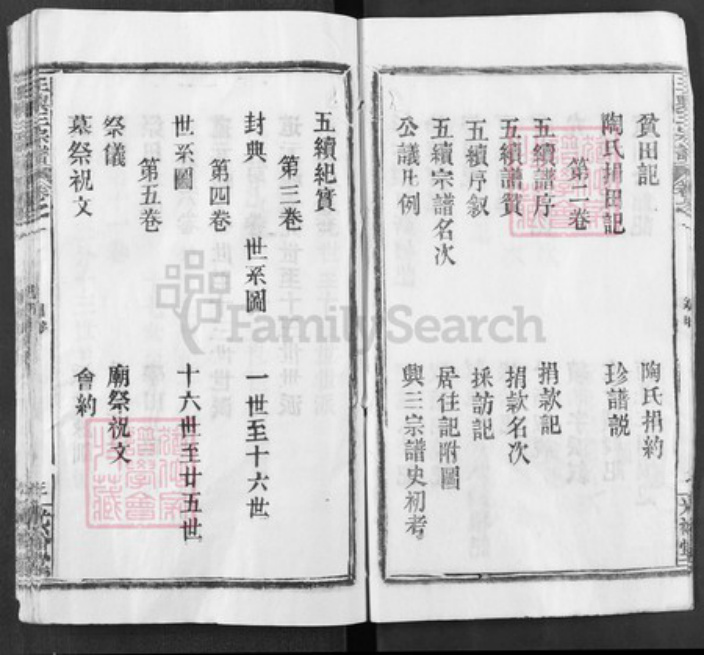 貧田記 陶氏捐約
陶氏捐田記 珍譜説
第二卷
五續譜序 捐款記
五續譜贊 捐款名次
五續序叙 採訪記
五續宗譜名次 居住記附圖
公議凡例 興三宗譜史初考
五續紀實
第三卷
封典 世系圖 一世至十六世
第四卷
世系圖 十六世至廿五世
第五卷
祭儀 廟祭祝文
墓祭祝文 會約
FamilySearch